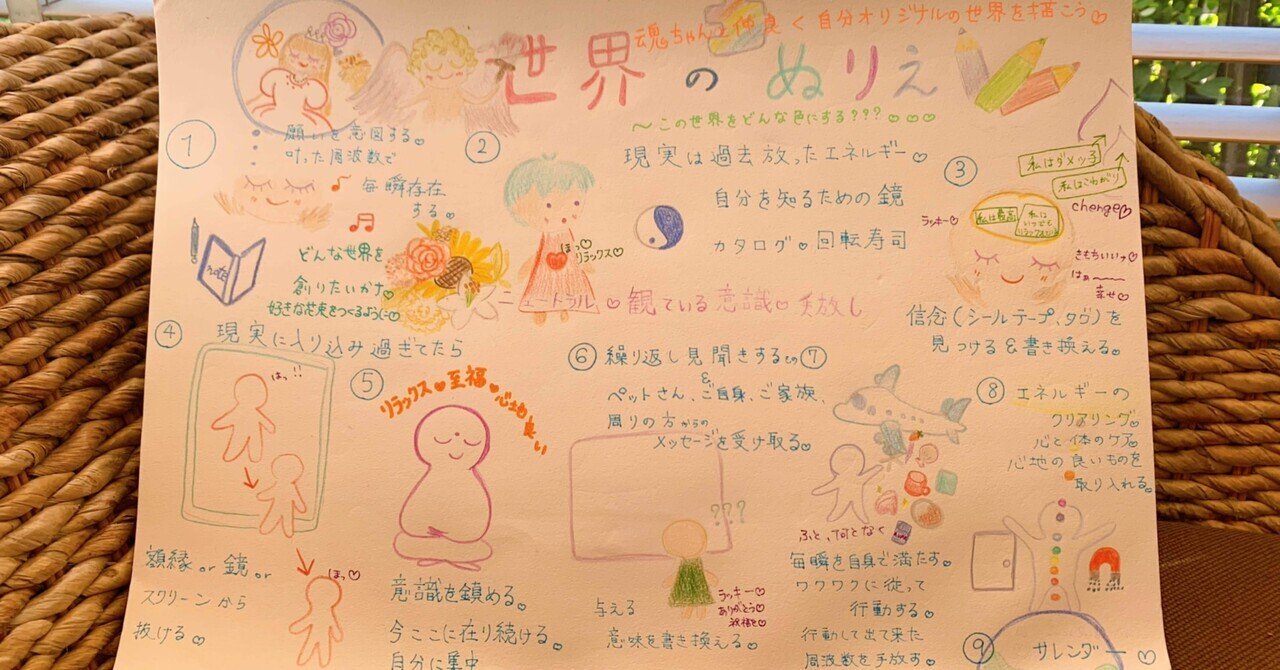 魂ちゃんと仲良く自分オリジナルの世界を描こう♡
世界のぬりえ
〜この世界をどんな色にする???♡♡♡
①
願いを意図する♡
叶った周波数で
毎瞬存在
する♡
note
どんな世界を
創りたいかな♡
好きな花束をつくるように♡
②
現実は過去放ったエネルギー♡
自分を知るための鏡
カタログ♡回転寿司
ほっ♡
リラックス♡
ニュートラル♡観ている意識♡手放し
③
私はダメッ子
私はこわがり
change♡
ラッキー♡
私は最高
私は
いつでも
リラックス
きもちいいッ♡
はぁ〜
幸せ♡
信念(シールテープ、タグ)を
見つける&書き換える♡
④
現実に入り込み過ぎてたら
はっ!!
ほっ♡
額縁or鏡or
スクリーンから
抜ける♡
⑤
リラックス♡至福♡心地良い
意識を鎮める♡
今ここに在り続ける♡
自分に集中
⑥
繰り返し見聞きするもの
&
ペットさん、ご自身、ご家族、
周りの方からの
メッセージを受け取る♡
???
ラッキー♡
ありがとう♡
与える
意味を書き換える♡
⑦
ふと、何となく
毎瞬を自身で満たす♡
ワクワクに従って
行動する♡
行動して出て来た
周波数を手放す♡
⑧
エネルギーの
クリアリング♡
心と体のケア♡
心地の良いものを
取り入れる♡
⑨
サレンダー♡